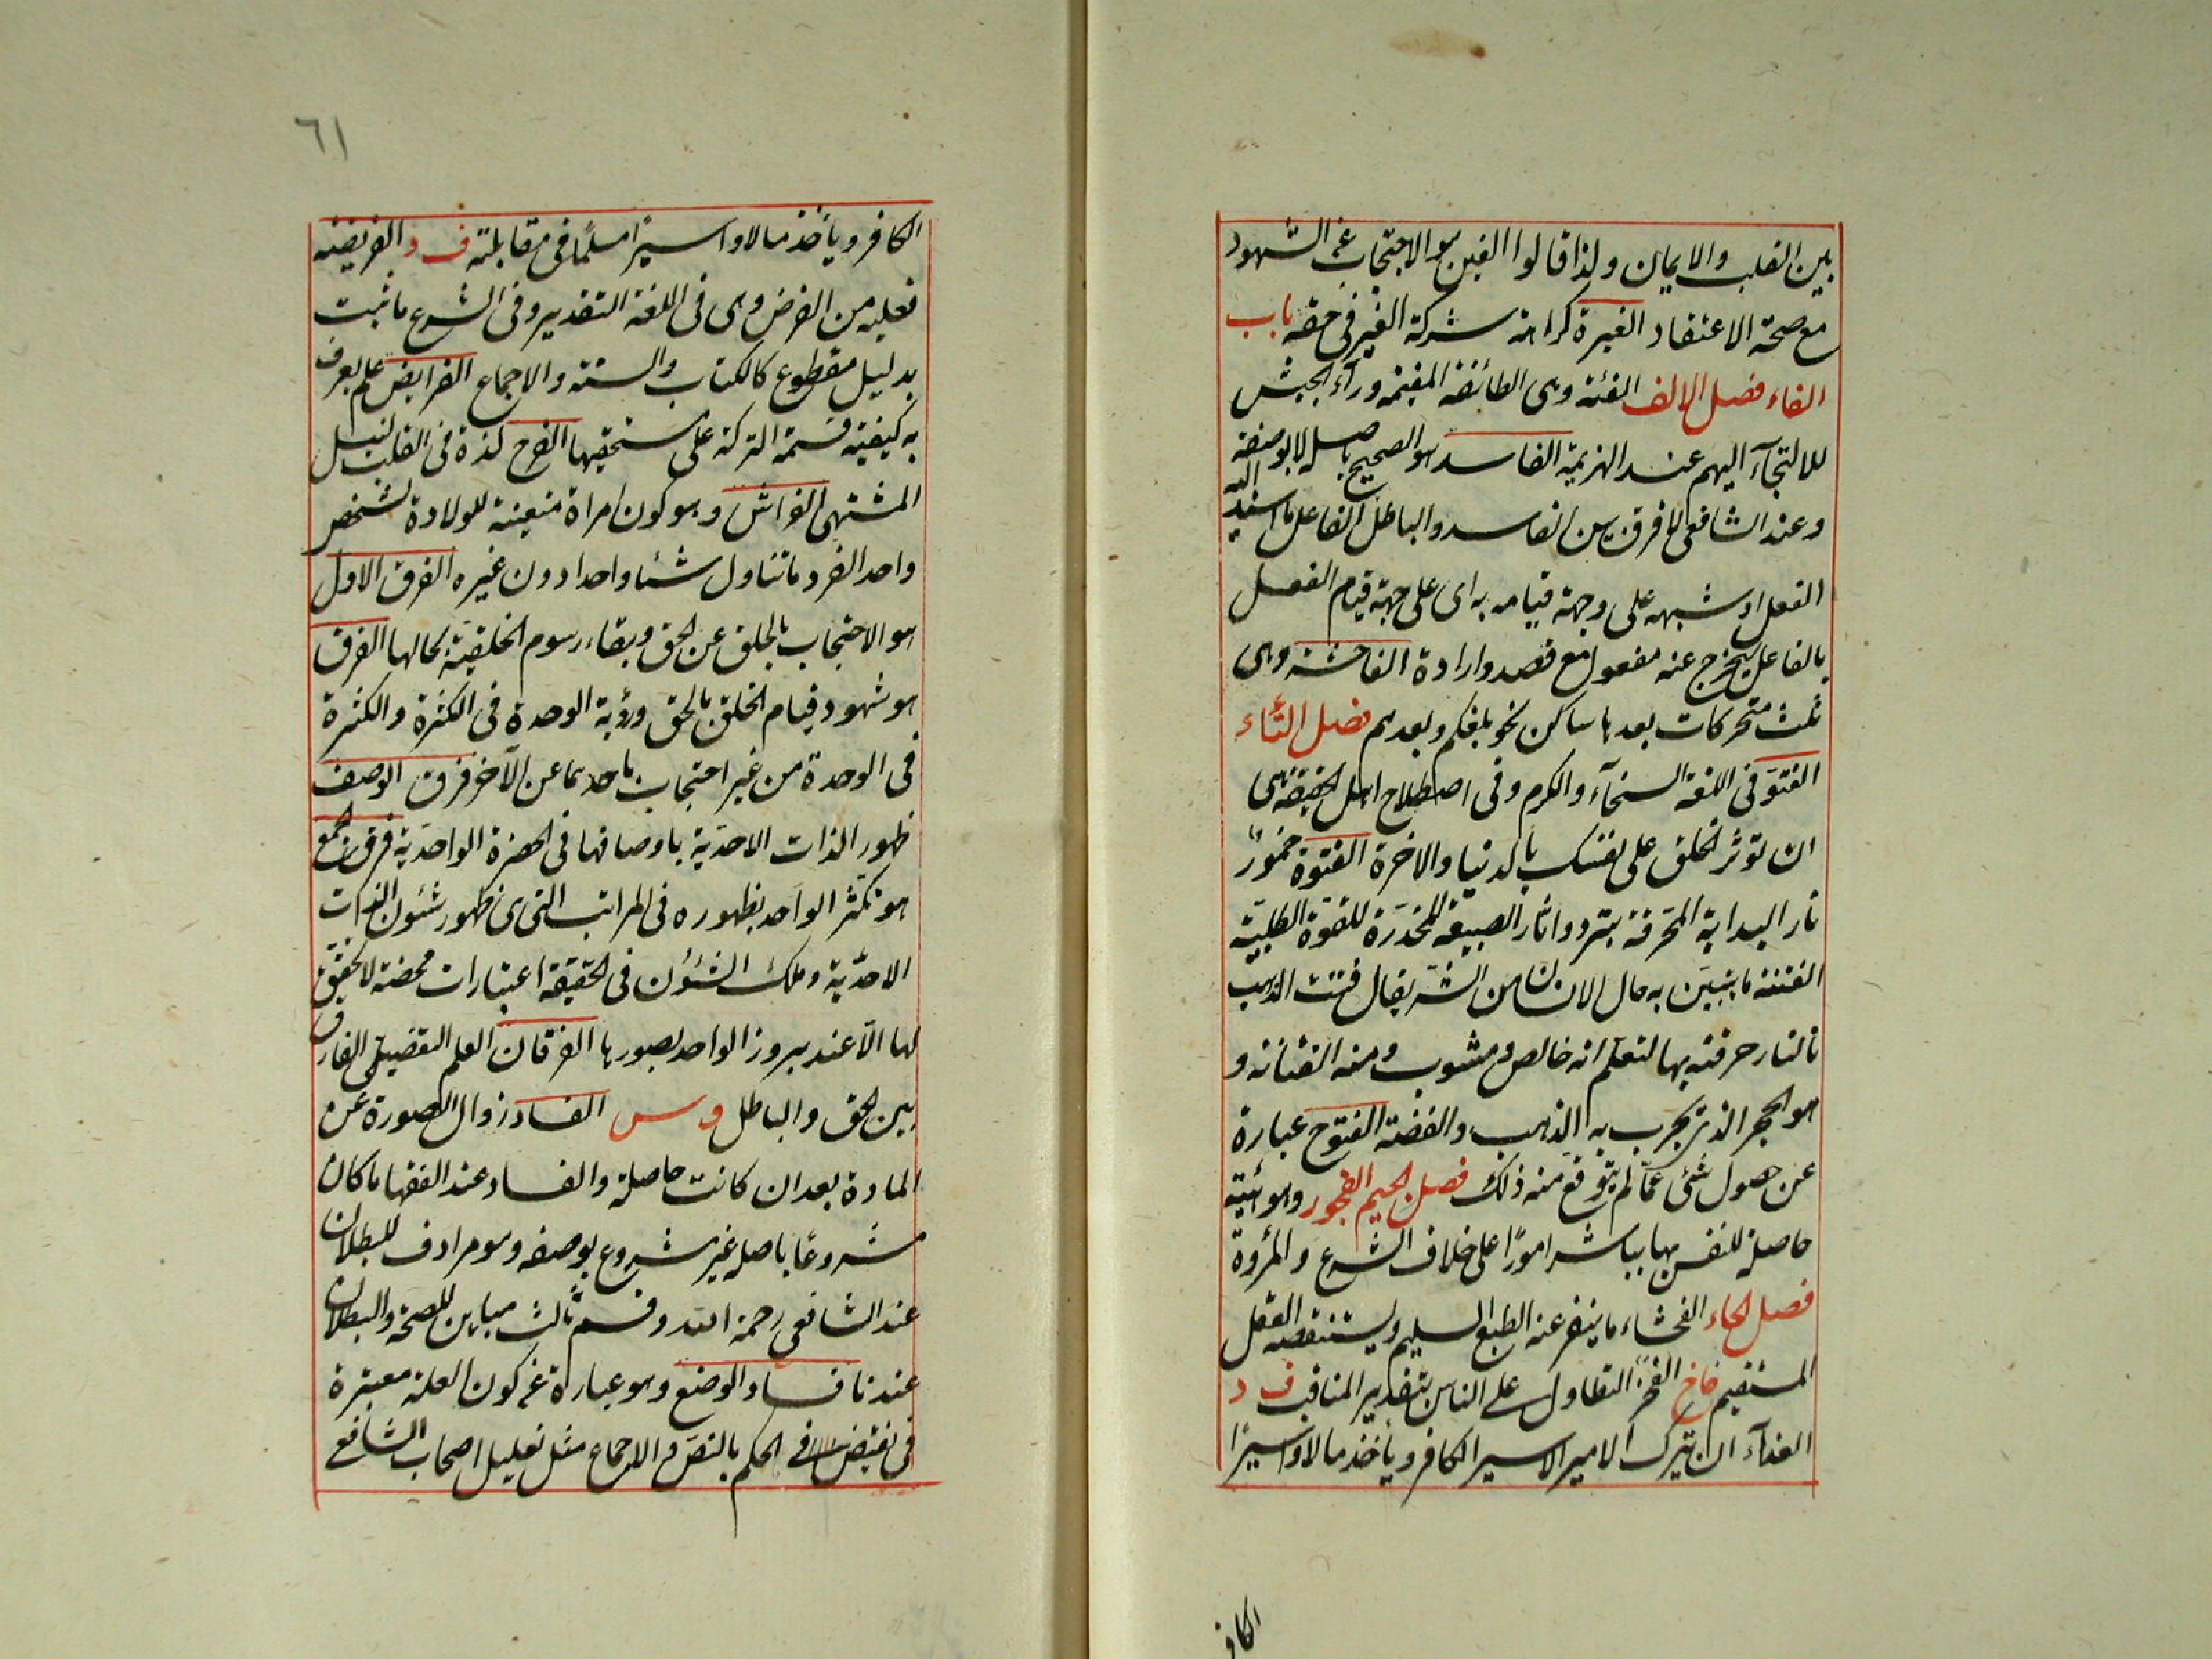 بين القلب والايمان ولذا قالوا الغين هو الاحتجاب عن الشهود
مع صحة الاعتقاد الغيرة كراهة شركة الغير فى حقه باب
الفاء فصل الالف الفئة وهى الطائفة المقيمة ورآء الجيش
للالتجآء اليهم عند الهزيمة الفاسد هو الصحيح باصله لا بوصفه
وعند الشافعى لا فرق بين الفاسد والباطل الفاعل ما اسند اليه
الفعل او شبهه على وجهة قيامه به اى على جهة قيام الفعل
بالفاعل ليخرج عنه مفعول مع قصد وارادة الفاحشة وهى
ثلث متحركات بعدها ساكن نحو بلغكم ويعدهم فصل التاء
الفتوة فى اللغة السخآء والكرم وفى اصطلاح اهل الحقيقة هى
ان تؤثر الخلق على نفسك بالدنيا والاخرة الفتوة خمود
نار البداية المحرقة بتردد اثار الطبيعة المخدرة للقوة الطلبية
الفتنة ما يتبين به حال الانسان من الشر يقال فتنت الذهب
بالنار حرقته بها لتعلم انه خالص او مشوب ومنه الفتانة و
هو الحجر الذى يجرب به الذهب والفضة الفتوح عبارة
عن حصول شئ عما لم يتوقع منه ذلك فصل الجيم الفجور وهو هيئة
حاصلة للنفس بها يباشر امورا على خلاف الشرع والمروءة
فصل الحاء الفحشاء ما ينفر عنه الطبع السليم ويستنقصه العقل
المستقيم ف خ الفخر التطاول على الناس بتعديد المناقب ف د
الفدآء ان يترك الامير الاسير الكافر ويأخذ مالا او اسيرا
الكافر
٦١
الكافر ويأخذ مالا او اسيرا مسلما فى مقابلته ف ر الفريضة
فعلية من الفرض وهى فى اللغة التقدير وفى الشرع ما ثبت
بدليل مقطوع كالكتاب والسنة والاجماع الفرايض علم يعرف
به كيفية قسمة التركة على مستحقيها الفرح لذة فى القلب لنيل
المشتهى الفراش وهو كون امراة متعينة للولادة لشخص
واحد الفرد ما تناول شئا واحدا دون غيره الفرق الاول
هو الاحتجاب بالخلق عن الحق وبقاء رسوم الخلقية بحالها الفرق
هو شهود قيام الخلق بالحق ورؤية الوحدة فى الكثرة والكثرة
فى الوحدة من غير احتجاب باحدهما عن الآخر فرق الوصف
ظهور الذات الاحدية باوصافها فى الحضرة الواحدية فرق الجمع
هو تكثر الواحد بظهوره فى المراتب التى هى ظهور شئون الذات
الاحدية وتلك الشئون فى الحقيقة اعتبارات محضة لا تحقق
لها الا عند بروز الواحد بصورها الفرقان العلم التفصيلى الفارق
بين الحق والباطل ف س الفساد زوال الصورة عن
المادة بعد ان كانت حاصلة والفساد عند الفقها ما كان
مشروعا باصله غير مشروع بوصفه وهو مرادف للبطلان
عند الشافعى رحمه الله وقسم ثالث مباين للصحة والبطلان
عندنا فساد الوضع وهو عبارة عن كون العلة معتبرة
فى نقيض الحكم بالنص او الاجماع مثل تعليل اصحاب الشافعى